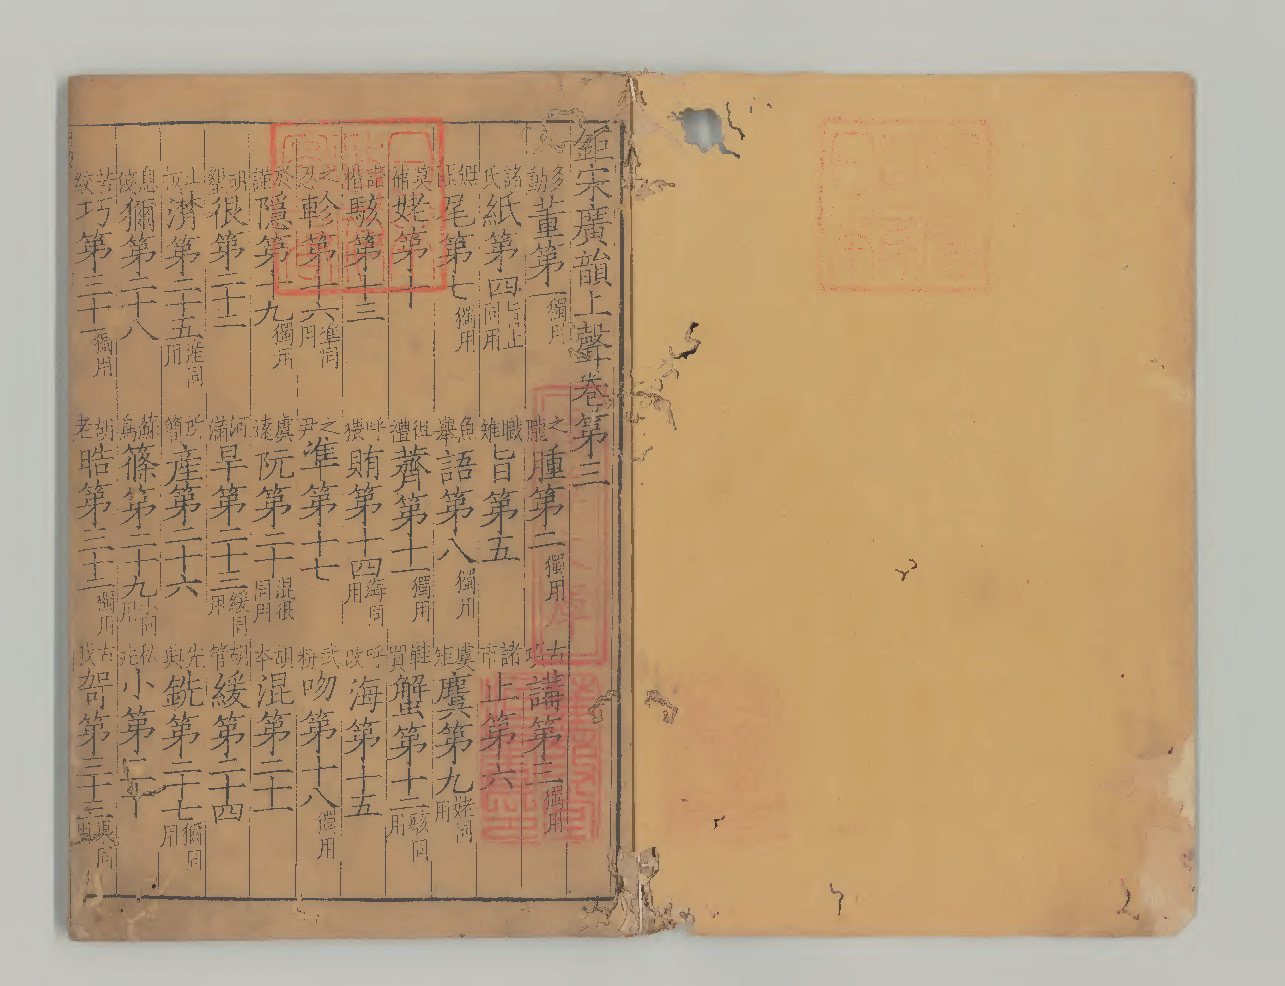 鉅宋廣韻上聲卷第三
多動董第一獨用 之隴腫第二獨用 古項講第三獨用
諸氏紙第四旨止同用 職雉旨第五 諸市止第六
無匪尾第七獨用 魚舉語第八獨用 虞矩麌第九姥同用
莫補姥第十 徂禮薺第十一獨用 鞋買蟹第十二駭同用
諧楷駭第十三 呼猥賄第十四海同用 呼改海第十五
之忍軫第十六準同用 之尹準第十七 武粉吻第十八獨用
於謹隱第十九獨用 虞遠阮第二十混很同用 胡本混第二十一
胡墾很第二十二 河滿旱第二十三緩同用 胡管緩第二十四
潸第二十五產同用 所簡產第二十六 先典銑第二十七獮同用
息淺獮第二十八 蘇鳥篠第二十九小同用 私兆小第三十
苦絞巧第三十一獨用 胡老晧第三十二獨用 古我哿第三十三果同